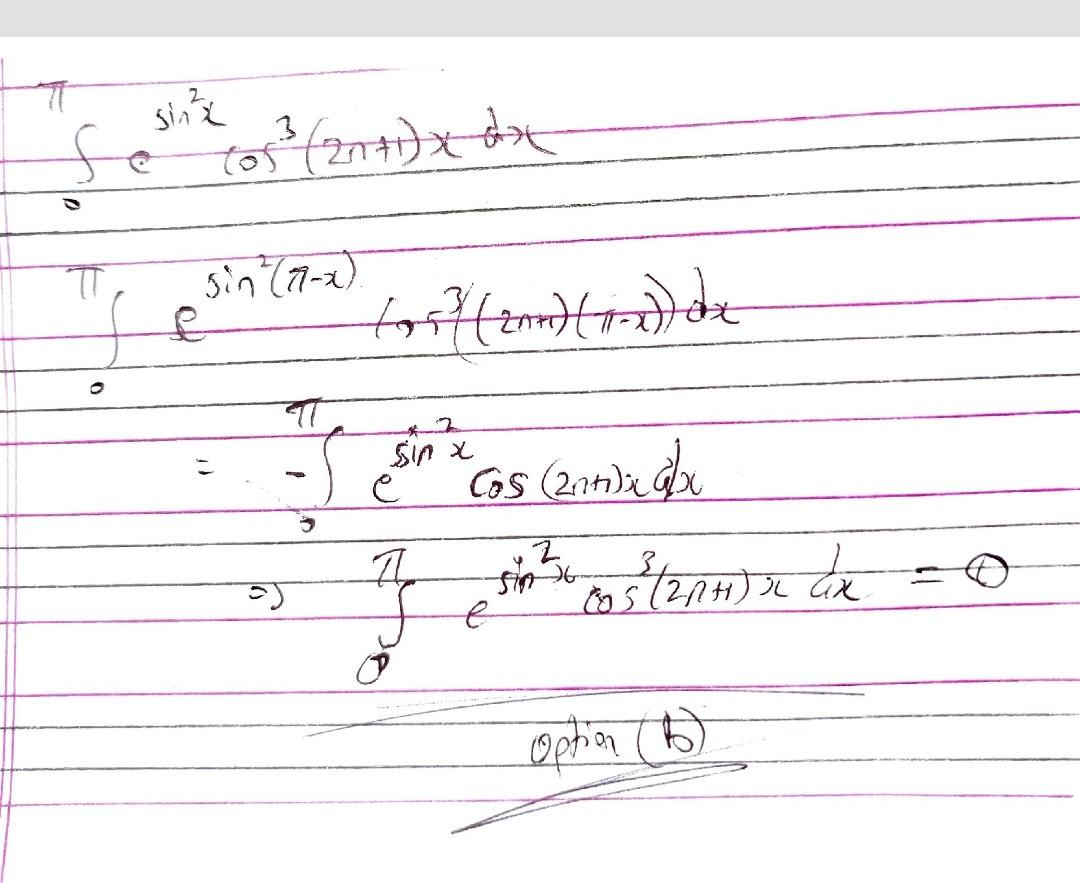 ∫₀^π e^{sin²x} cos³(2n+1)x dx
∫₀^π e^{sin²(π-x)} cos³((2n+1)(π-x)) dx
= -∫₀^π e^{sin²x} cos(2n+1)x dx
=> ∫₀^π e^{sin²x} cos³(2n+1)x dx = 0
option (b)